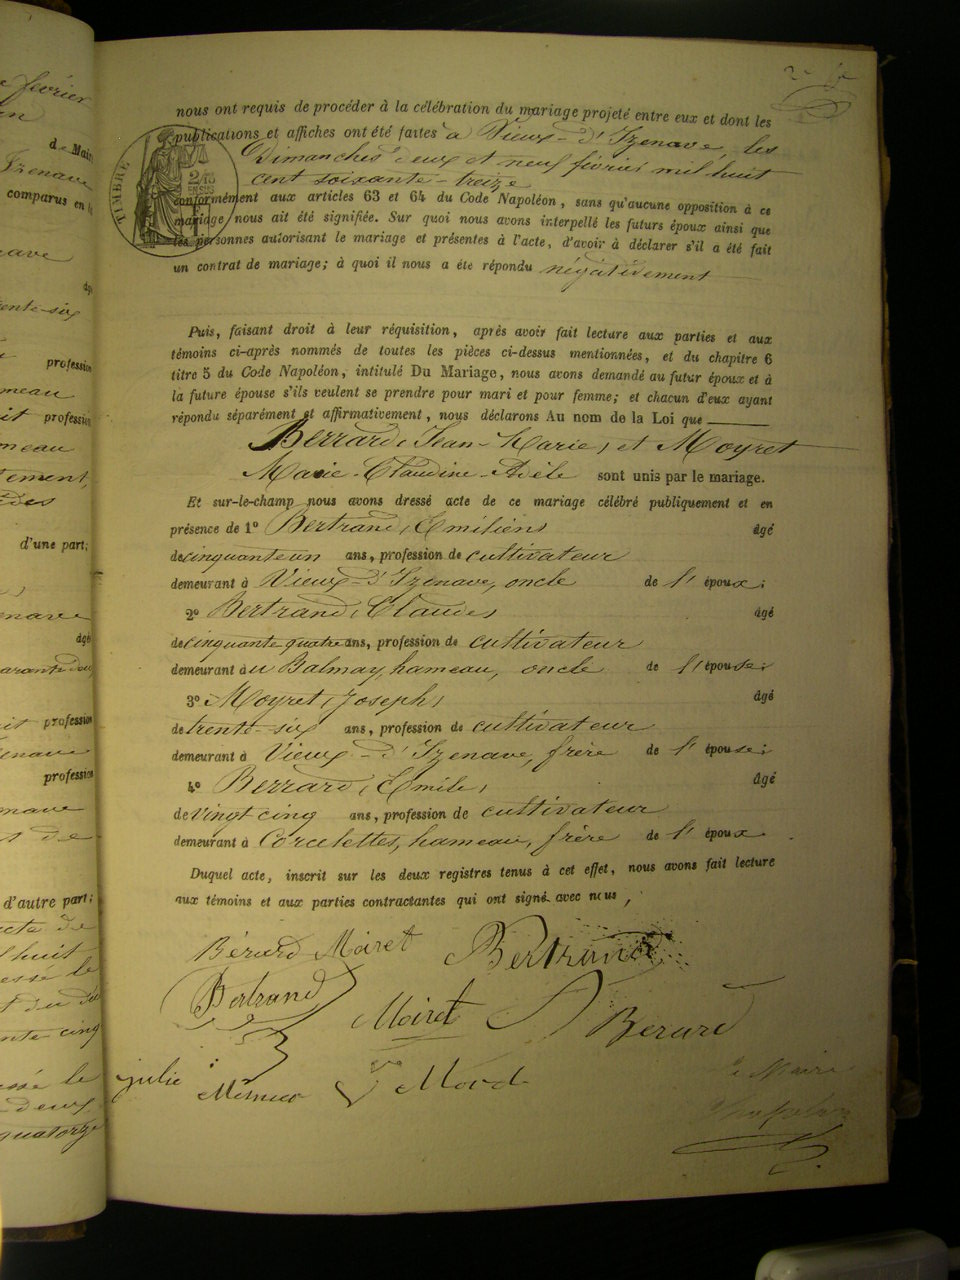 février
de Mair
comparus en
profession
profession
d'une part;
âgé
profession
profession
d'autre part;
nous ont requis de procéder à la célébration du mariage projeté entre eux et dont les
publications et affiches ont été faites à Vieux-d'Izenave, les
Dimanches deux et neuf février mil huit
cent soixante-treize
TIMBRE
conformément aux articles 63 et 64 du Code Napoléon, sans qu'aucune opposition à ce
mariage nous ait été signifiée. Sur quoi nous avons interpellé les futurs époux ainsi que
les personnes autorisant le mariage et présentes à l'acte, d'avoir à déclarer s'il a été fait
un contrat de mariage; à quoi il nous a été répondu négativement
Puis, faisant droit à leur réquisition, après avoir fait lecture aux parties et aux
témoins ci-après nommés de toutes les pièces ci-dessus mentionnées, et du chapitre 6
titre 5 du Code Napoléon, intitulé Du Mariage, nous avons demandé au futur époux et à
la future épouse s'ils veulent se prendre pour mari et pour femme; et chacun d'eux ayant
répondu séparément et affirmativement, nous déclarons Au nom de la Loi que
Berrard, Jean-Marie, et Moyret
Marie-Claudine-Adèle sont unis par le mariage.
Et sur-le-champ nous avons dressé acte de ce mariage célébré publiquement et en
présence de 1º Bertrand, Emilien, âgé
de cinquante un ans, profession de cultivateur
demeurant à Vieux-d'Izenave, oncle de l'époux;
2º Bertrand, Claude, âgé
de cinquante quatre ans, profession de cultivateur
demeurant à u Balmay, hameau, oncle de l'épouse;
3º Moyret, Joseph, âgé
de trente-six ans, profession de cultivateur
demeurant à Vieux-d'Izenave, frère de l'épouse;
4º Berrard, Emile, âgé
de vingt cinq ans, profession de cultivateur
demeurant à Corcelettes, hameau, frère de l'époux.
Duquel acte, inscrit sur les deux registres tenus à cet effet, nous avons fait lecture
aux témoins et aux parties contractantes qui ont signé avec nous,
Bérard Moiret Bertrand
Bertrand Moiret Berard
julie